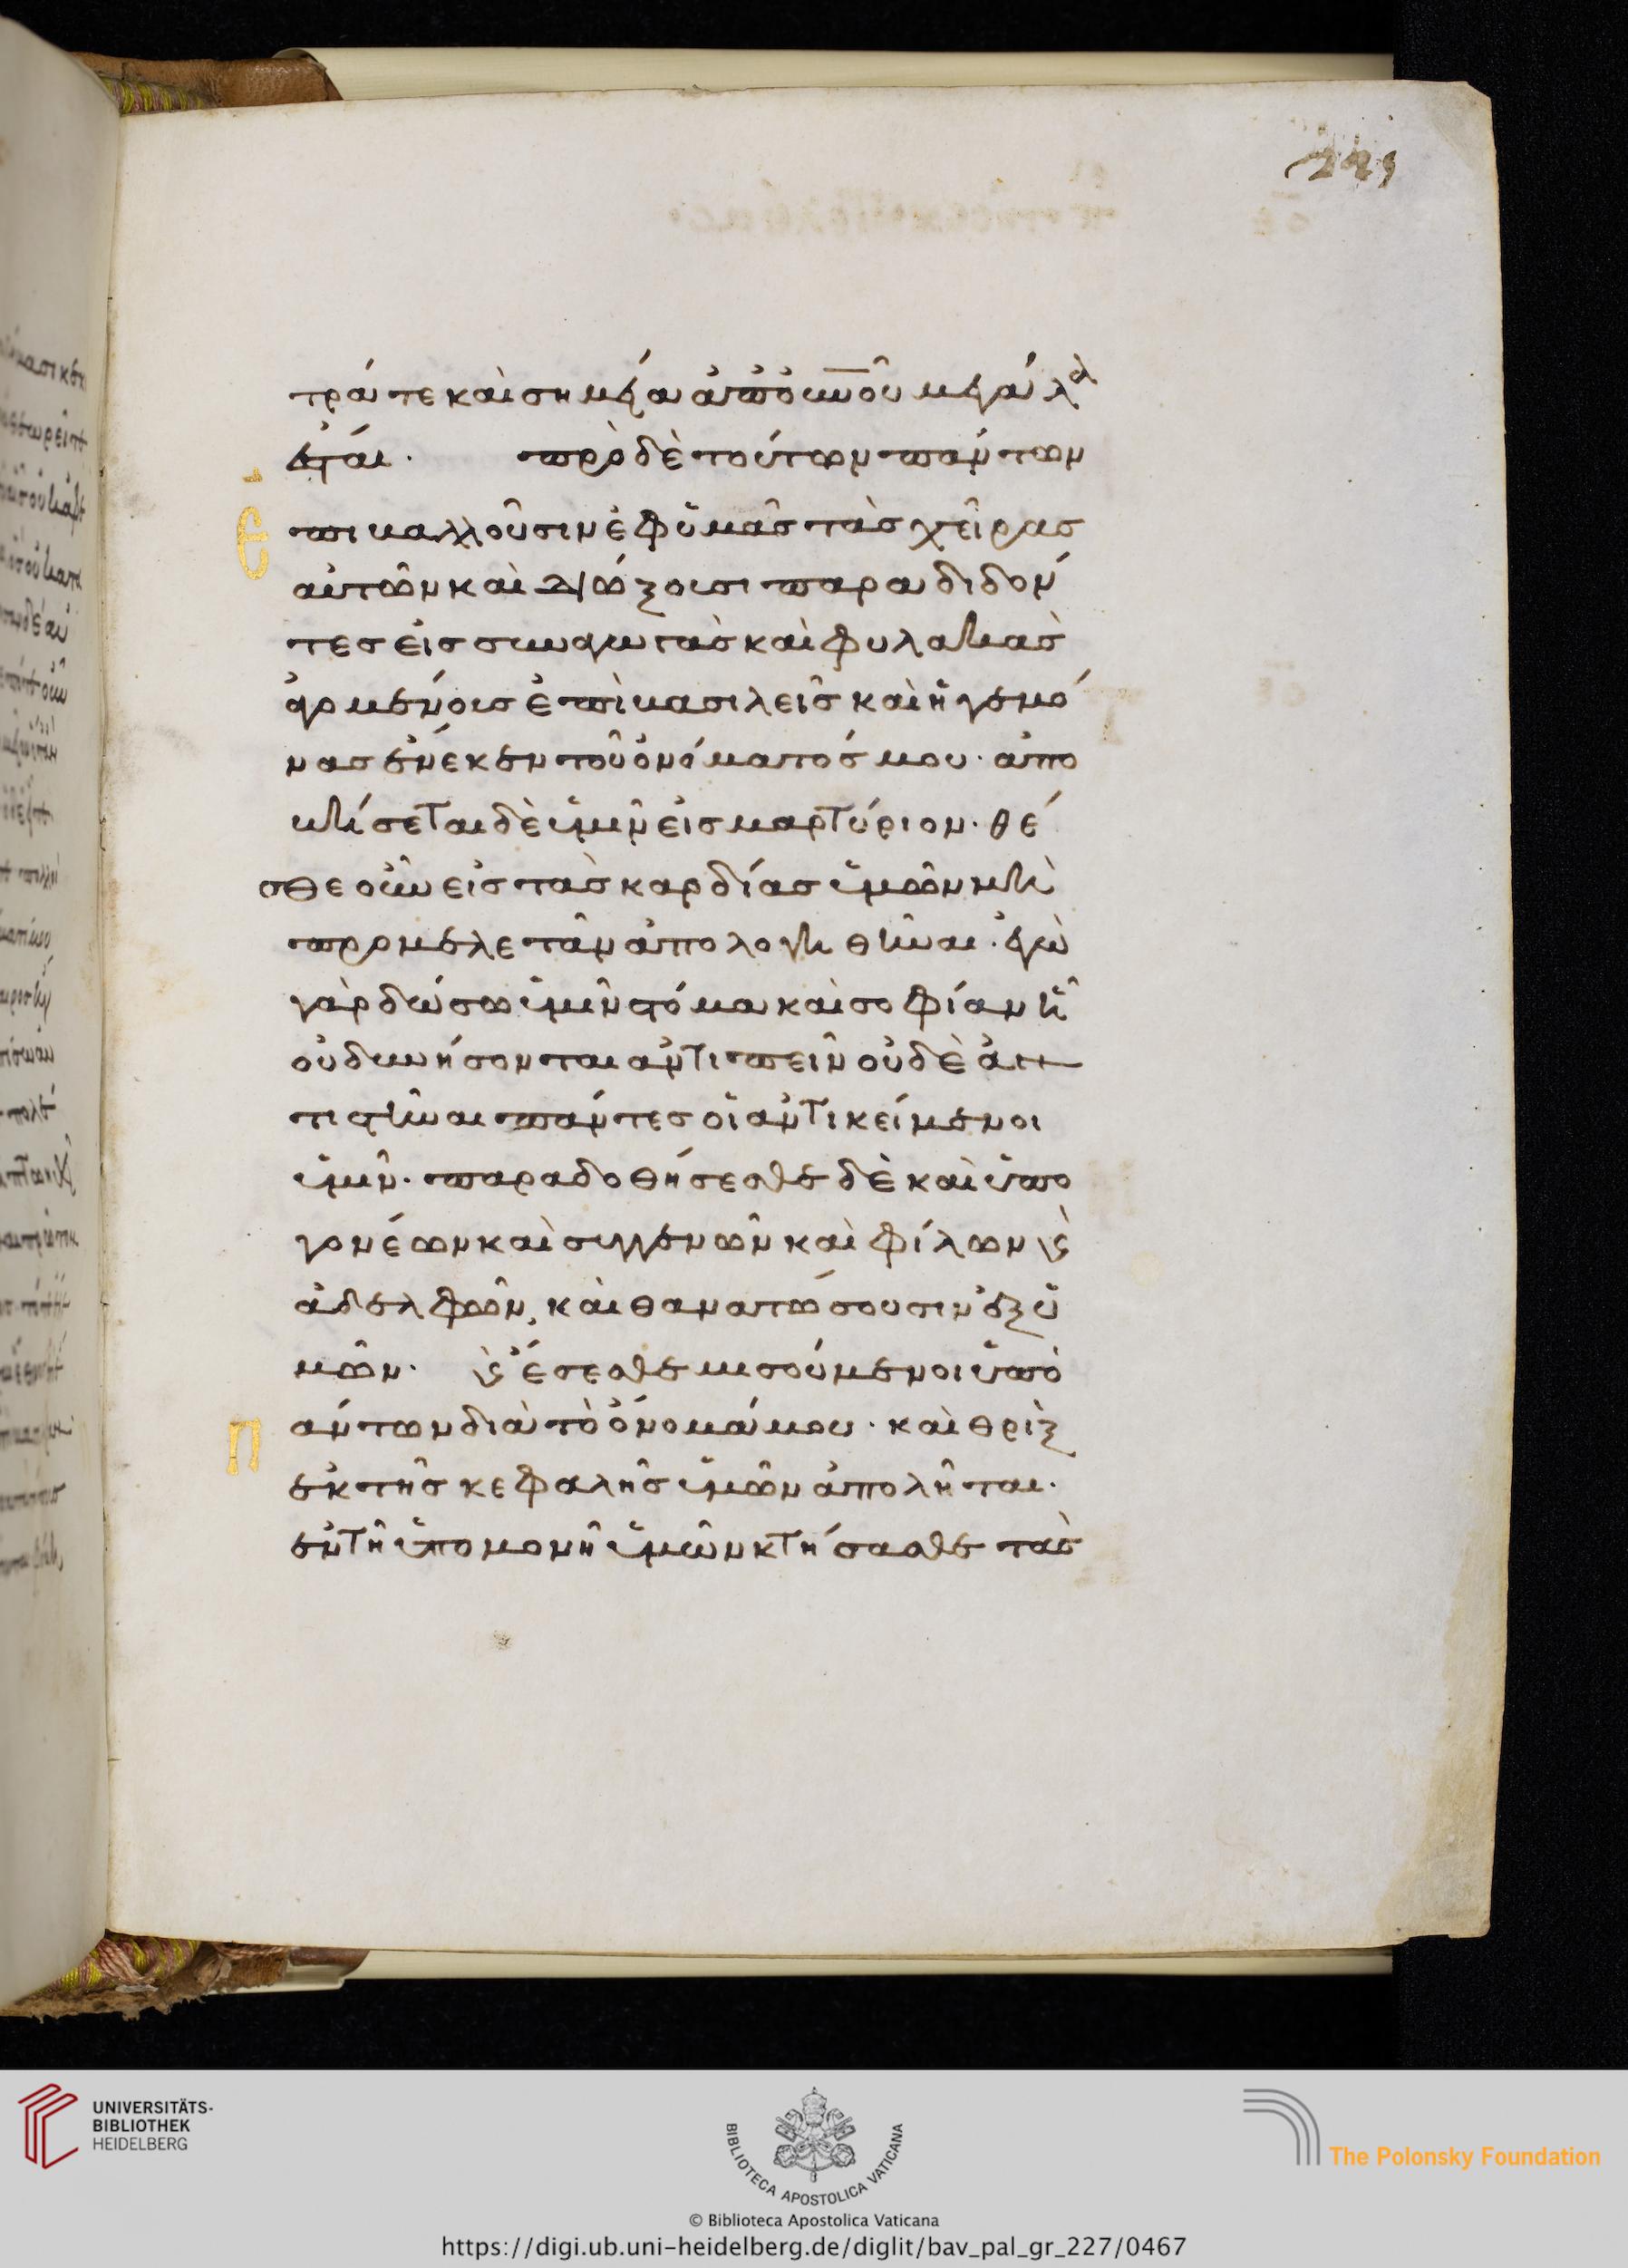 229
τρά τε καὶ σημεῖα ἀπὸ οὐνοῦ μεγάλα
ἔσται. πρὸ δὲ τούτων πάντων
Ἐπιβαλλοῦσιν ἐφ ὑμᾶς τὰς χεῖρας
αὐτῶν καὶ διώξουσι παραδιδόν
τες εἰς συναγωγὰς καὶ φυλακὰς
ἀγομένους ἐπὶ βασιλεῖς καὶ ἡγεμό
νας ἕνεκεν τοῦ ὀνόματός μου. ἀπο
βήσεται δὲ ὑμῖν εἰς μαρτύριον. θέ
σθε οὖν εἰς τὰς καρδίας ὑμῶν μὴ
προμελετᾶν ἀπολογηθῆναι. ἐγὼ
γὰρ δώσω ὑμῖν στόμα καὶ σοφίαν ᾗ
οὐ δυνήσονται ἀντιπεῖν οὐδὲ ἀν
τιστῆναι πάντες οἱ ἀντικείμενοι
ὑμῖν. παραδοθήσεσθε δὲ καὶ ὑπο
γονέων καὶ συγγενῶν καὶ φίλων ϗ
ἀδελφῶν, καὶ θανατώσουσιν ἐξ ὑ
μῶν. ϗ ἔσεσθε μισούμενοι ὑπὸ
Πάντων διὰ τὸ ὄνομά μου. καὶ θρὶξ
ἐκ τῆς κεφαλῆς ὑμῶν ἀπολῆται.
ἐν τῇ ὑπομονῇ ὑμῶν κτήσασθε τὰς
UNIVERSITÄTS-
BIBLIOTHEK
HEIDELBERG
BIBLIOTECA APOSTOLICA VATICANA
The Polonsky Foundation
© Biblioteca Apostolica Vaticana
https://digi.ub.uni-heidelberg.de/diglit/bav_pal_gr_227/0467